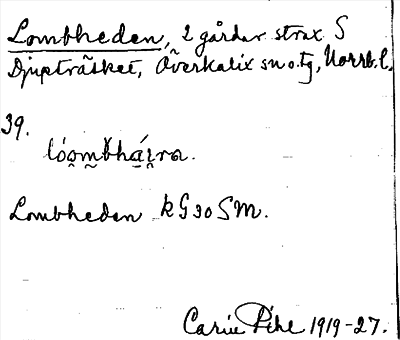 Lombheden, 2 gårdar strax S
Djupträsket, Överkalix sn o. tg, Norrb. l.
39.
Lombheden kG30SM.
Carin Pihl 1919-27.